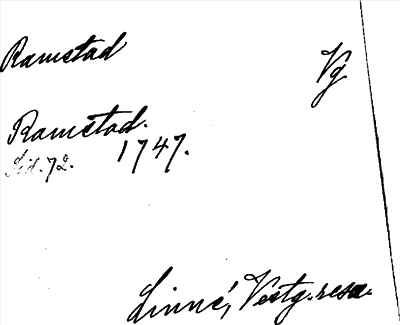 Ramstad Vg
Ramstad.
Sid. 72. 1747.
Linné, Vestg. resa.